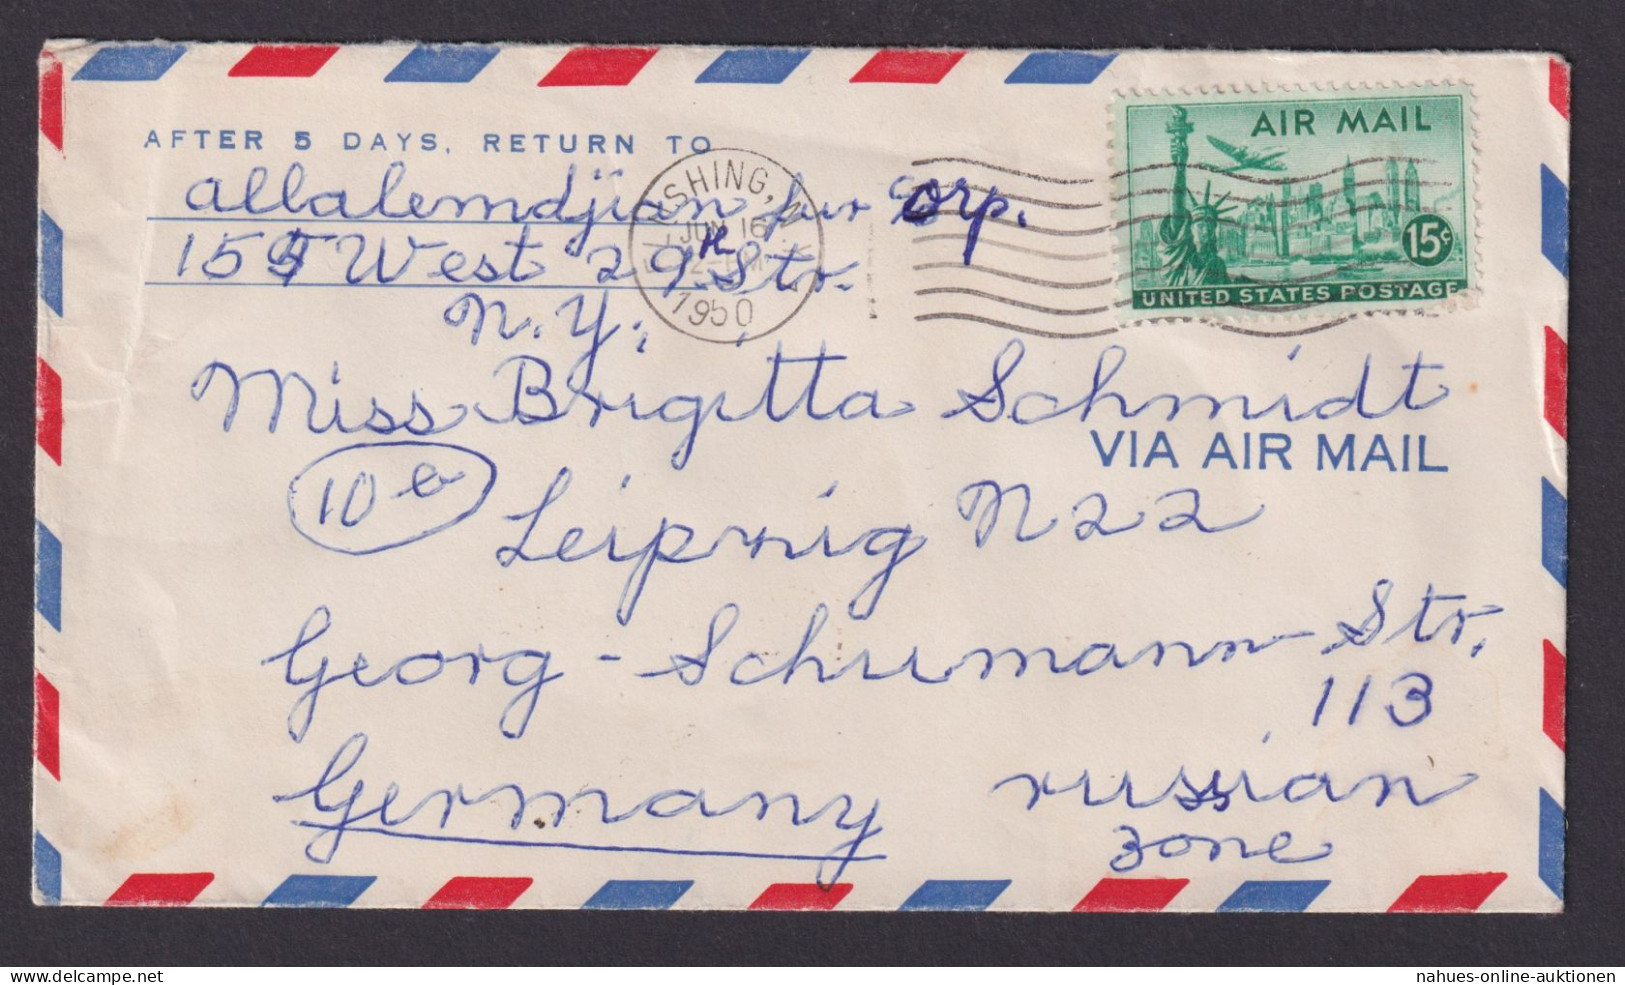 AFTER 5 DAYS, RETURN TO
Allalemdjian fur Corp.
155 West 29th Str.
N.Y.
FLUSHING, N.Y.
JUN 16
1950
AIR MAIL
15¢
UNITED STATES POSTAGE
Miss Brigitta Schmidt
VIA AIR MAIL
10a
Leipzig N22
Georg-Schumann-Str.
113
Germany russian
zone
nahues-online-auktionen